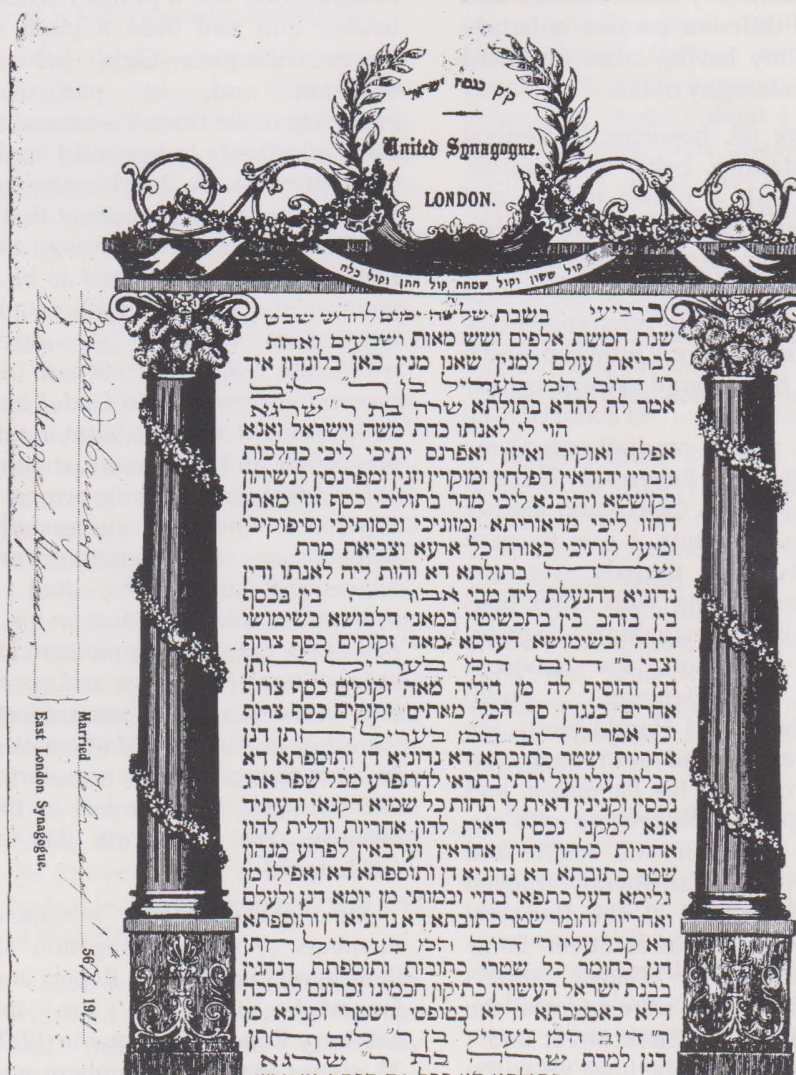 ק״ק כנסת ישראל
United Synagogue.
LONDON.
קול ששון וקול שמחה קול חתן וקול כלה
ברביעי בשבת שלשה ימים לחדש שבט
שנת חמשת אלפים ושש מאות ושבעים ואחת
לבריאת עולם למנין שאנו מנין כאן בלונדון איך
ר׳ דוב המ׳ בעריל בן ר׳ ליב
אמר לה להדא בתולתא שרה בת ר׳ שרגא
הוי לי לאנתו כדת משה וישראל ואנא
אפלח ואוקיר ואיזון ואפרנס יתיכי ליכי כהלכות
גוברין יהודאין דפלחין ומוקרין וזנין ומפרנסין לנשיהון
בקושטא ויהיבנא ליכי מהר בתוליכי כסף זוזי מאתן
דחזו ליכי מדאוריתא ומזוניכי וכסותיכי וסיפוקיכי
ומיעל לותיכי כאורח כל ארעא וצביאת מרת
שרה בתולתא דא והות ליה לאנתו ודין
נדוניא דהנעלת ליה מבי אביה בין בכסף
בין בזהב בין בתכשיטין במאני דלבושא בשימושי
דירה ובשימושא דערסא מאה זקוקים כסף צרוף
וצבי ר׳ דוב המ׳ בעריל חתן
דנן והוסיף לה מן דיליה מאה זקוקים כסף צרוף
אחרים כנגדן סך הכל מאתים זקוקים כסף צרוף
וכך אמר ר׳ דוב המ׳ בעריל חתן דנן
אחריות שטר כתובתא דא נדוניא דין ותוספתא דא
קבלית עלי ועל ירתי בתראי להתפרע מכל שפר ארג
נכסין וקנינין דאית לי תחות כל שמיא דקנאי ודעתיד
אנא למקני נכסין דאית להון אחריות ודלית להון
אחריות כלהון יהון אחראין וערבאין לפרוע מנהון
שטר כתובתא דא נדוניא דין ותוספתא דא ואפילו מן
גלימא דעל כתפאי בחיי ובמותי מן יומא דנן ולעלם
ואחריות וחומר שטר כתובתא דא נדוניא דין ותוספתא
דא קבל עליו ר׳ דוב המ׳ בעריל חתן
דנן כחומר כל שטרי כתובות ותוספתות דנהגין
בבנת ישראל העשויין כתיקון חכמינו זכרונם לברכה
דלא כאסמכתא ודלא כטופסי דשטרי וקנינא מן
ר׳ דוב המ׳ בעריל בן ר׳ ליב חתן
דנן למרת שרה בת ר׳ שרגא
Barnard
Married 1st 5671 1911
East London Synagogue.